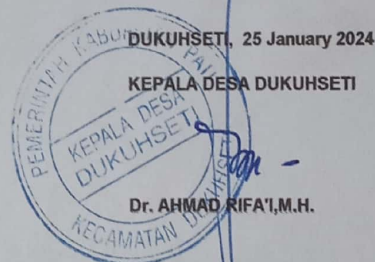 DUKUHSETI, 25 January 2024
KEPALA DESA DUKUHSETI
PEMERINTAH KABUPATEN PATI
KEPALA DESA
DUKUHSETI
KECAMATAN DUKUHSETI
Dr. AHMAD RIFA'I,M.H.